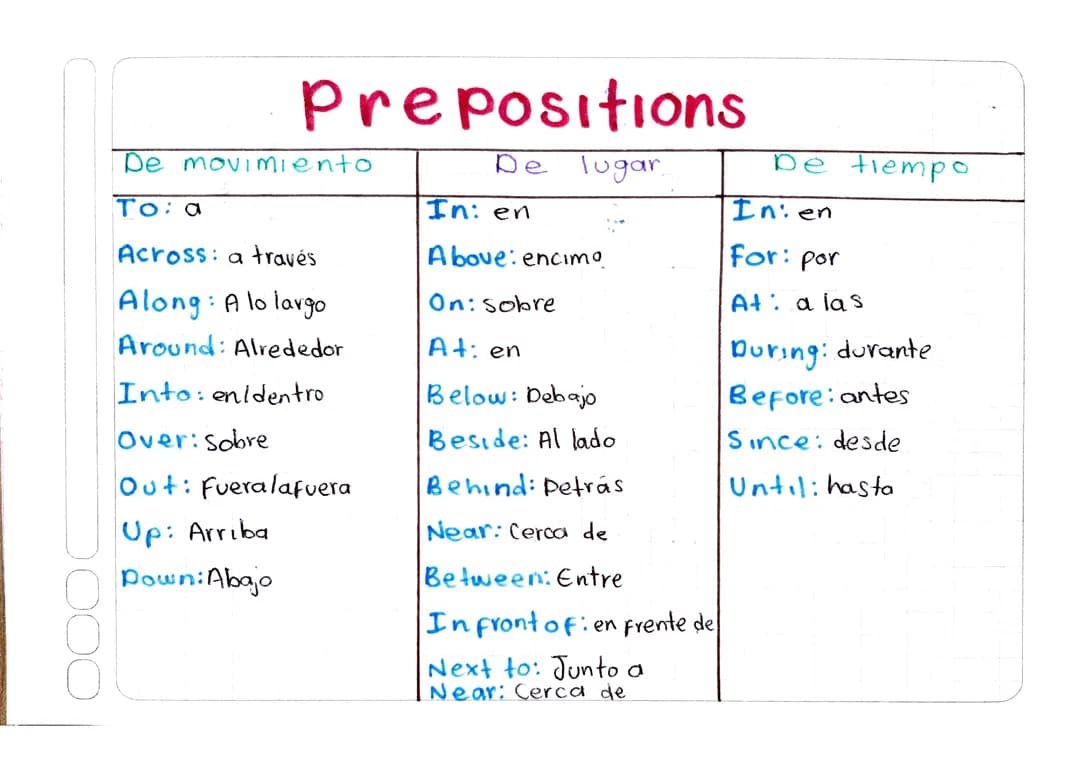 Prepositions
De movimiento
To: a
Across: a través
Along: A lo largo
Around: Alrededor
Into: en/dentro
Over: sobre
Out: Fuera/afuera
Up: Arriba
Down: Abajo
De lugar
In: en
Above: encima
On: sobre
At: en
Below: Debajo
Beside: Al lado
Behind: Detrás
Near: Cerca de
Between: Entre
In front of: en frente de
Next to: Junto a
Near: Cerca de
De tiempo
In: en
For: por
At: a las
During: durante
Before: antes
Since: desde
Until: hasta